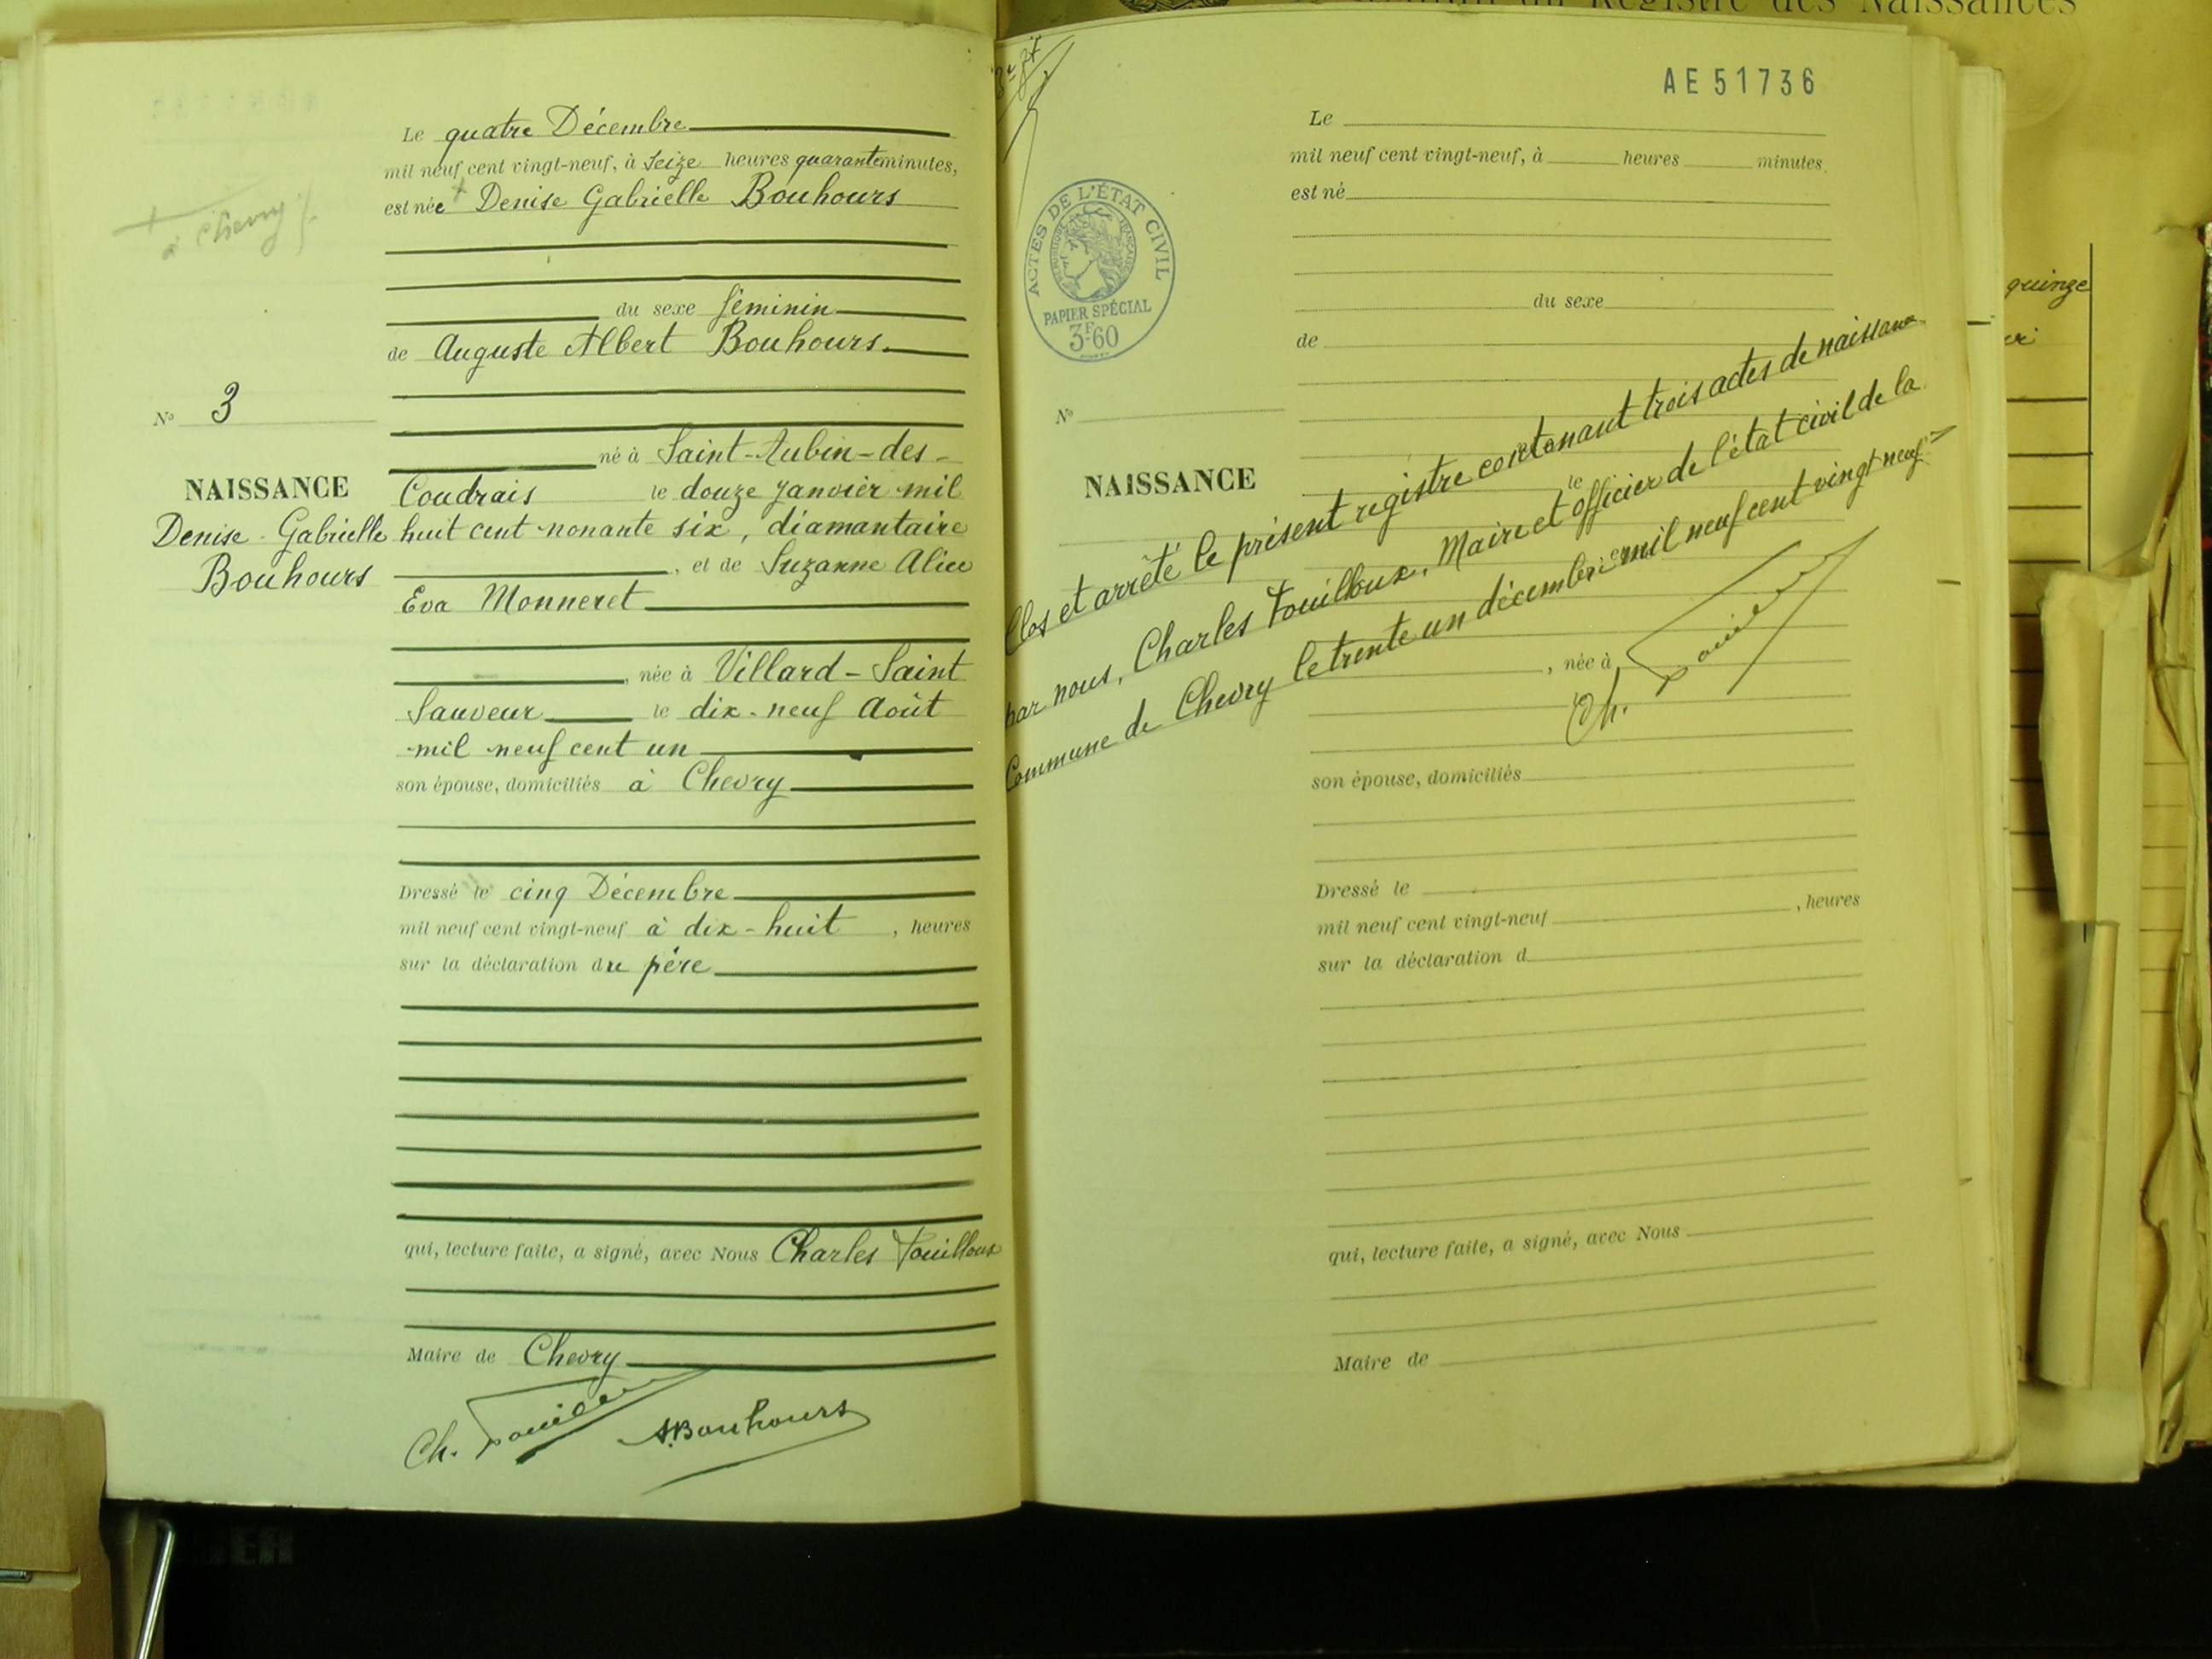 Le quatre Décembre
mil neuf cent vingt-neuf, à seize heures quarante minutes,
est née Denise Gabrielle Bouhours
à Chevry
du sexe féminin
de Auguste Albert Bouhours
N° 3
né à Saint-Aubin-des-
Coudrais le douze Janvier mil
huit cent nonante six, diamantaire
NAISSANCE
Denise-Gabrielle
Bouhours
, et de Suzanne Alice
Eva Monneret
, née à Villard-Saint
Sauveur le dix-neuf Août
mil neuf cent un
son épouse, domiciliés à Chevry
Dressé le cinq Décembre
mil neuf cent vingt-neuf à dix-huit, heures
sur la déclaration du père
qui, lecture faite, a signé, avec Nous Charles Fouilloux
Maire de Chevry
Ch.
A.Bouhours
Registre des Naissances
AE51736
Le
mil neuf cent vingt-neuf, à heures minutes.
est né
ACTES DE L'ÉTAT CIVIL
RÉPUBLIQUE FRANÇAISE
PAPIER SPÉCIAL
3F60
du sexe
de
N°
NAISSANCE
le
Clos et arrêté le présent registre contenant trois actes de naissance
par nous, Charles Fouilloux, Maire et officier de l'état civil de la
Commune de Chevry le trente un décembre mil neuf cent vingt neuf
, née à
Ch.
son épouse, domiciliés
Dressé le
mil neuf cent vingt-neuf , heures
sur la déclaration d
qui, lecture faite, a signé, avec Nous
Maire de
quinze